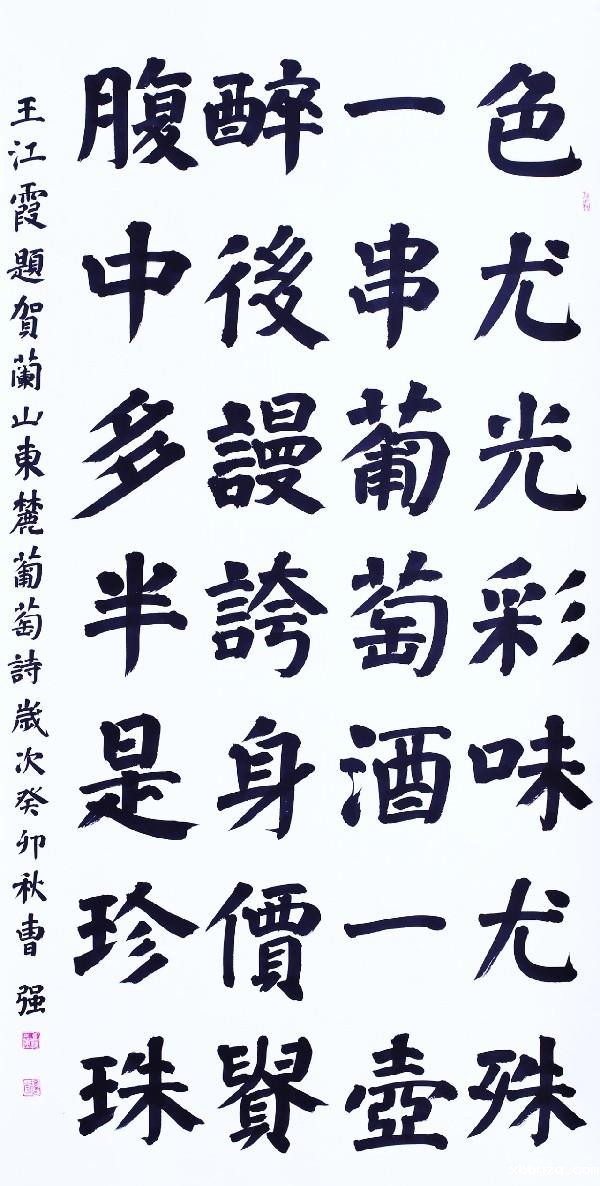 色尤光彩味尤殊
一串葡萄酒一壺
醉後謾誇身價貴
腹中多半是珍珠
王江霞題賀蘭山東麓葡萄詩歲次癸卯秋曹强